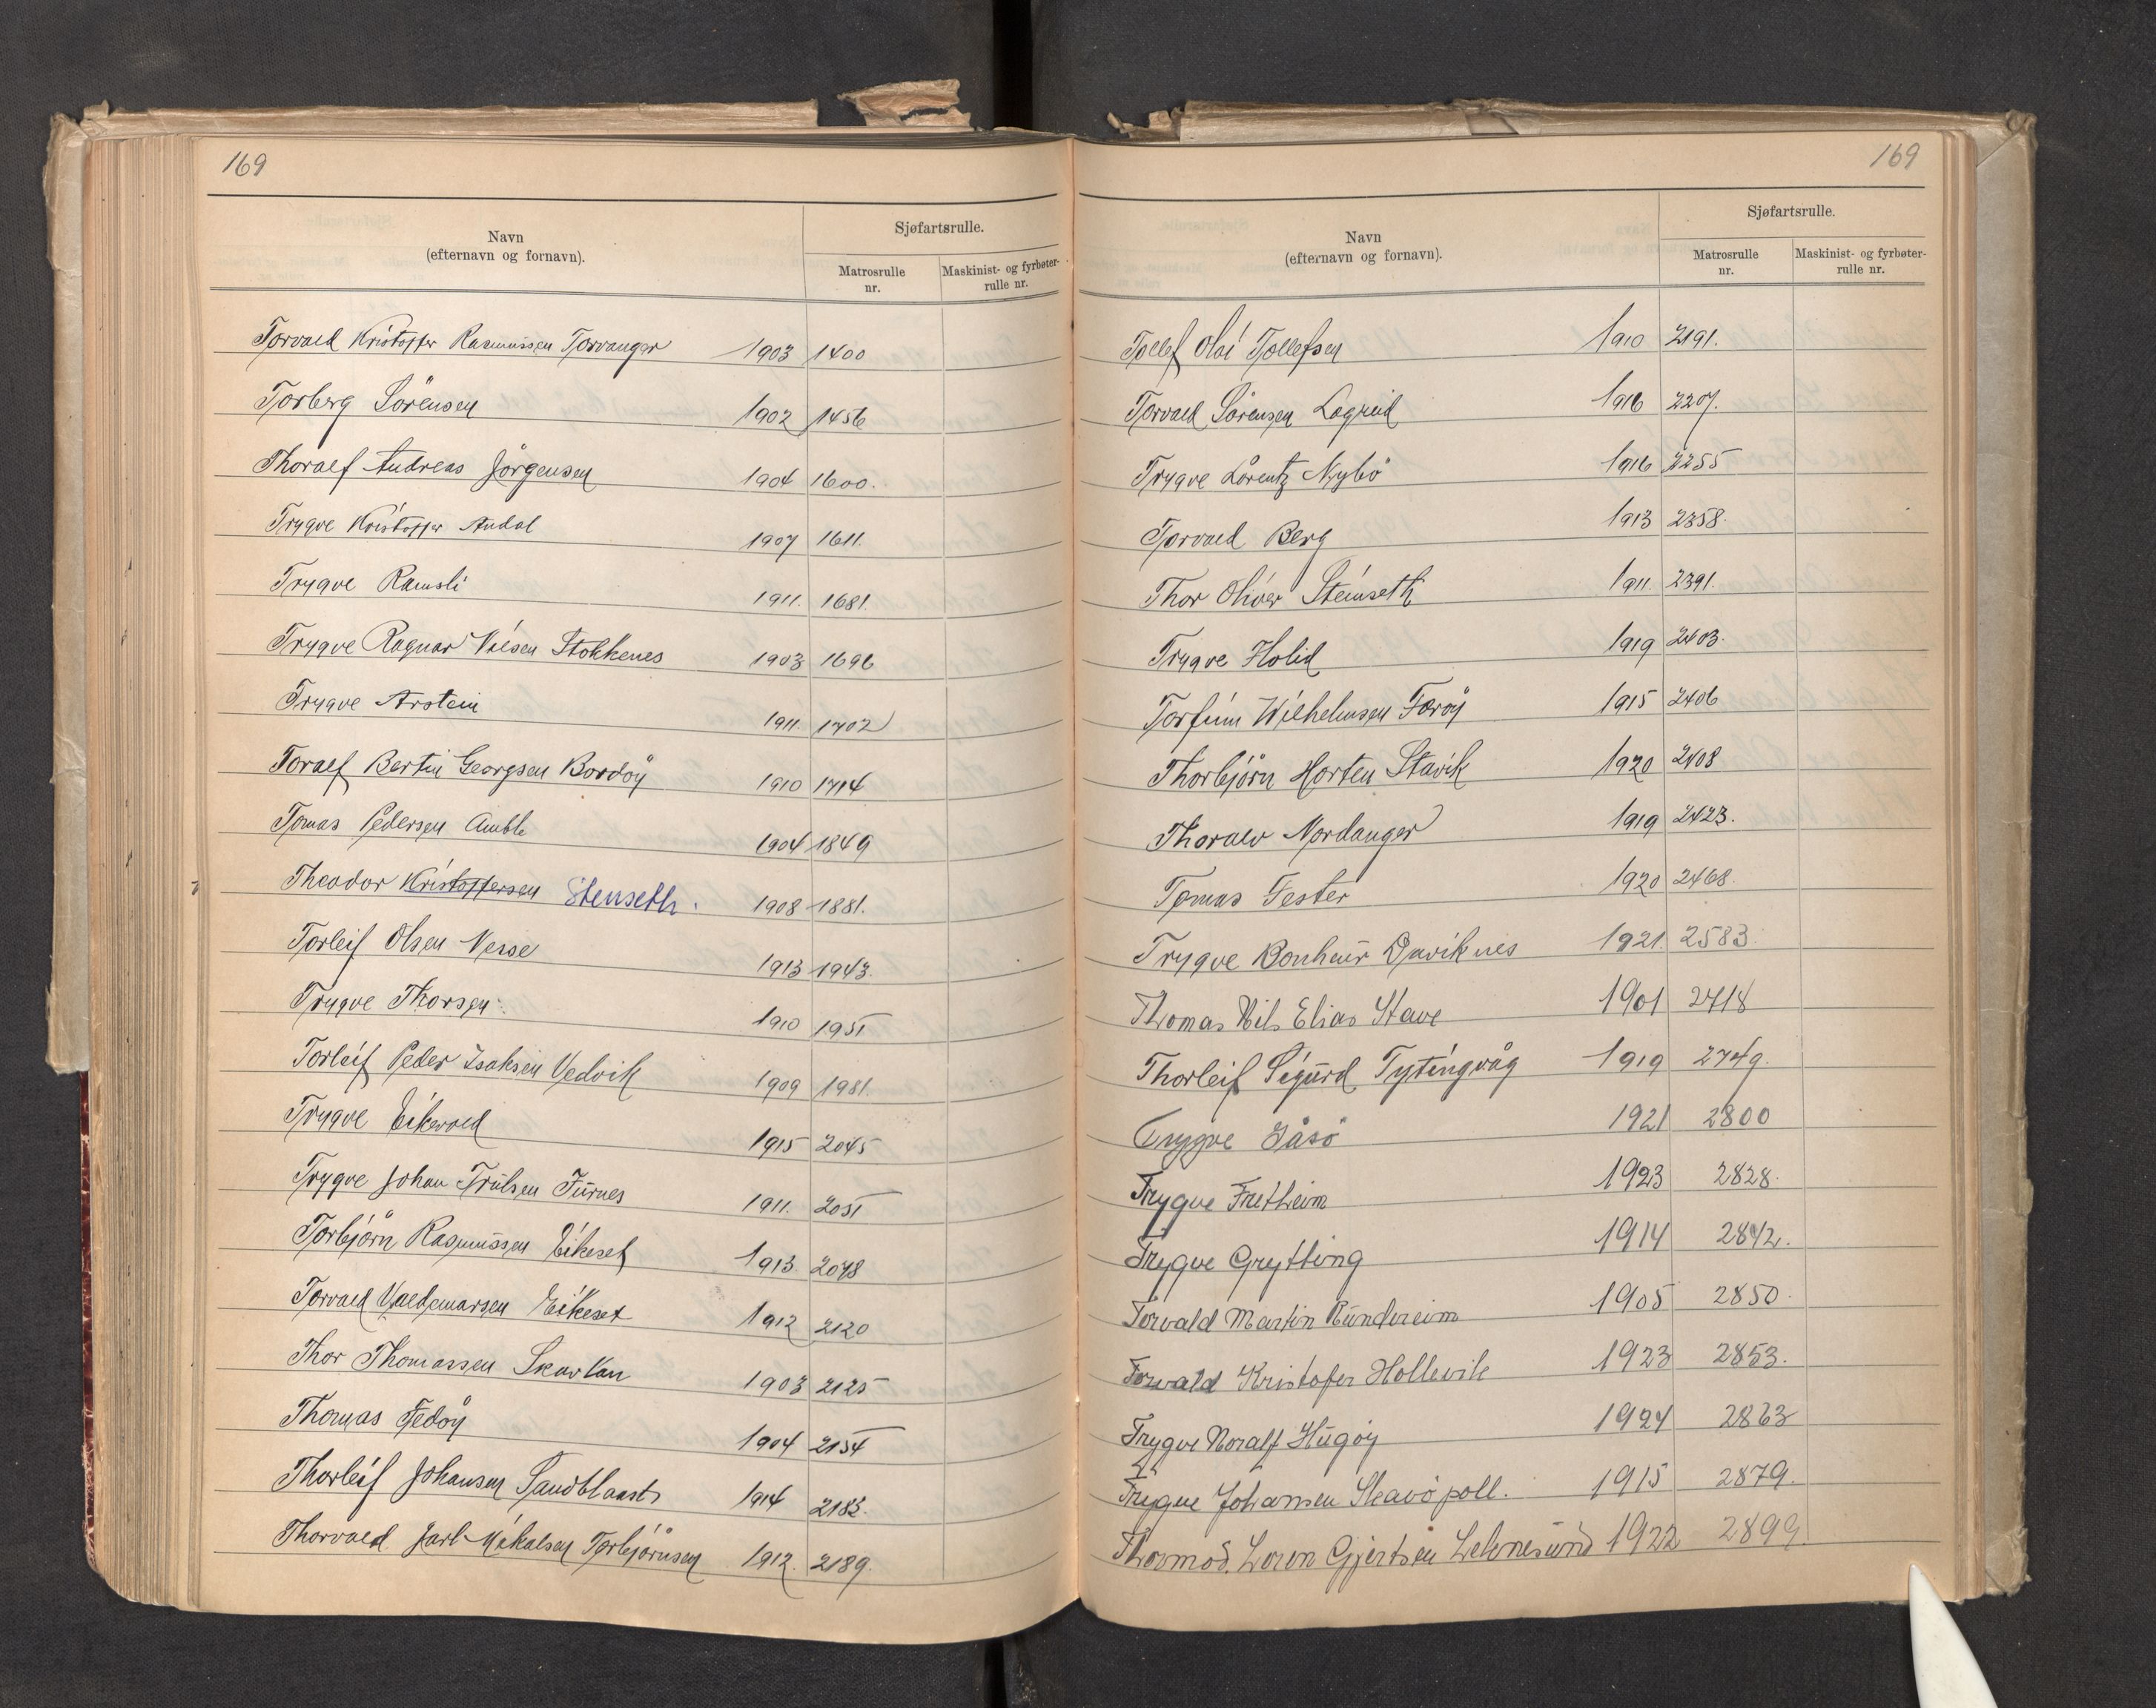 169
Navn
(efternavn og fornavn).
Sjøfartsrulle.
Matrosrulle
nr.
Maskinist- og fyrbøter-
rulle nr.
Torvald Kristoffer Rasmussen Torvanger 1903 1400
Torberg Sörensen 1902 1456
Thoralf Andreas Jörgensen 1904 1600.
Trygve Kristoffer Andal 1907 1611.
Trygve Ramsli 1911. 1681.
Trygve Ragnar Nilsen Stokkenes 1903 1696
Trygve Arstein 1911. 1702
Toralf Bertin Georgsen Bordöy 1910 1714
Tomas Pedersen Amble 1904 1849
Theodor Kristoffersen Stenseth. 1908 1881.
Torleif Olsen Nesse 1913 1943.
Trygve Thorsen 1910 1951
Torleif Peder Isaksen Vedvik 1909 1981.
Trygve Eikevold 1915 2045
Trygve Johan Trulsen Furnes 1911. 2051
Torbjörn Rasmussen Eikeset 1913 2078
Torvald Valdemarsen Eikeset 1912 2120
Thor Thomassen Skavlan 1903 2125
Thomas Fedöy 1904 2154
Thorleif Johansen Sandblaast 1914 2183.
Thorvald Jarl Mikalsen Torbjörnsen 1912. 2189.
169
Navn
(efternavn og fornavn).
Sjøfartsrulle.
Matrosrulle
nr.
Maskinist- og fyrbøter-
rulle nr.
Tollef Olai Tollefsen 1910 2191.
Torvald Sörensen Lagreid 1916 2207.
Trygve Lorentz Nybö 1916 2255
Torvald Berg 1913 2358.
Thor Oliver Steinseth 1911. 2391.
Trygve Holid 1919 2403.
Torfinn Wilhelmsen Faröy 1915 2406
Thorbjörn Morten Stavik 1920 2408
Thoralv Nordanger 1919 2423.
Tomas Fester 1920 2468.
Trygve Bonheur Daviknes 1921. 2583.
Thomas Nils Elias Stave 1901 2718
Thorleif Sigurd Tytingvåg 1919 2749.
Trygve 1921 2800
Trygve Fretheim 1923 2828.
Trygve Grytting 1914 2842.
Torvald Martin Rundereim 1905 2850.
Torvald Kristofer Hollevik 1923 2853.
Trygve Noralf Hugöy 1924 2863
Trygve Johansen Skavöpoll. 1915 2879.
Thormod. Loren Gjertsen Lelnesund 1922 2899.